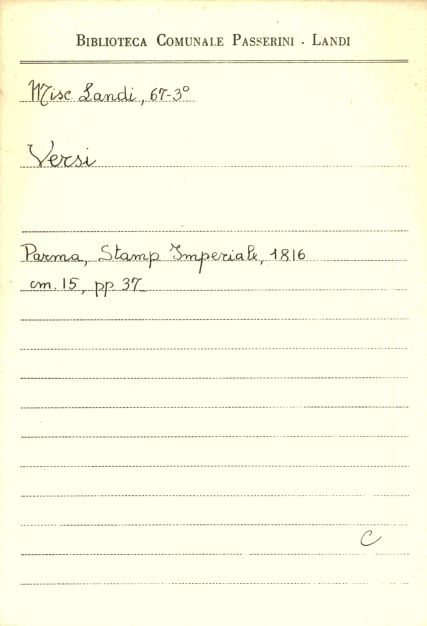 BIBLIOTECA COMUNALE PASSERINI - LANDI
Misc Landi, 67-3°
Versi
Parma, Stamp Imperiale, 1816
cm. 15, pp 37
C